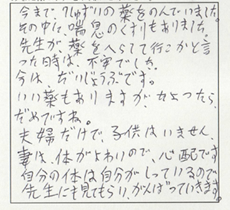 今まで、7しゅるいの薬をのんでいました。
その中に、喘息のくすりもありました。
先生が、薬をへらして行こかと言
った時は、不安でした。
今は、だいじょうぶです。
いい薬もありますが、たよったら、
だめですね。
夫婦だけで、子供はいません。
妻は、体がよわいので、心配です
自分の体は自分がしっているので
先生にも見てもらい、がんばっていきます。